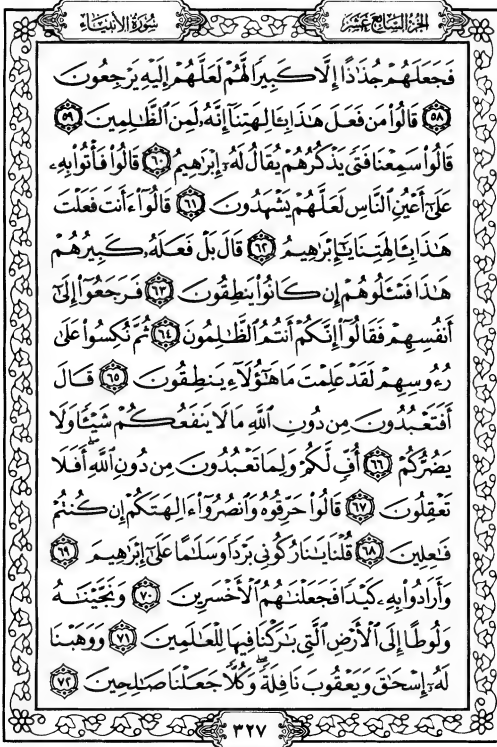 سُورَةُ الأَنبِيَاء
الجُزءُ السَّابِعُ عَشَر
فَجَعَلَهُمْ جُذَٰذًا إِلَّا كَبِيرًا لَّهُمْ لَعَلَّهُمْ إِلَيْهِ يَرْجِعُونَ
٥٨ قَالُوا۟ مَن فَعَلَ هَٰذَا بِـَٔالِهَتِنَآ إِنَّهُۥ لَمِنَ ٱلظَّٰلِمِينَ ٥٩
قَالُوا۟ سَمِعْنَا فَتًى يَذْكُرُهُمْ يُقَالُ لَهُۥٓ إِبْرَٰهِيمُ ٦٠ قَالُوا۟ فَأْتُوا۟ بِهِۦ
عَلَىٰٓ أَعْيُنِ ٱلنَّاسِ لَعَلَّهُمْ يَشْهَدُونَ ٦١ قَالُوٓا۟ ءَأَنتَ فَعَلْتَ
هَٰذَا بِـَٔالِهَتِنَا يَٰٓإِبْرَٰهِيمُ ٦٢ قَالَ بَلْ فَعَلَهُۥ كَبِيرُهُمْ
هَٰذَا فَسْـَٔلُوهُمْ إِن كَانُوا۟ يَنطِقُونَ ٦٣ فَرَجَعُوٓا۟ إِلَىٰٓ
أَنفُسِهِمْ فَقَالُوٓا۟ إِنَّكُمْ أَنتُمُ ٱلظَّٰلِمُونَ ٦٤ ثُمَّ نُكِسُوا۟ عَلَىٰ
رُءُوسِهِمْ لَقَدْ عَلِمْتَ مَا هَٰٓؤُلَآءِ يَنطِقُونَ ٦٥ قَالَ
أَفَتَعْبُدُونَ مِن دُونِ ٱللَّهِ مَا لَا يَنفَعُكُمْ شَيْـًٔا وَلَا
يَضُرُّكُمْ ٦٦ أُفٍّ لَّكُمْ وَلِمَا تَعْبُدُونَ مِن دُونِ ٱللَّهِ ۖ أَفَلَا
تَعْقِلُونَ ٦٧ قَالُوا۟ حَرِّقُوهُ وَٱنصُرُوٓا۟ ءَالِهَتَكُمْ إِن كُنتُمْ
فَٰعِلِينَ ٦٨ قُلْنَا يَٰنَارُ كُونِى بَرْدًا وَسَلَٰمًا عَلَىٰٓ إِبْرَٰهِيمَ ٦٩
وَأَرَادُوا۟ بِهِۦ كَيْدًا فَجَعَلْنَٰهُمُ ٱلْأَخْسَرِينَ ٧٠ وَنَجَّيْنَٰهُ
وَلُوطًا إِلَى ٱلْأَرْضِ ٱلَّتِى بَٰرَكْنَا فِيهَا لِلْعَٰلَمِينَ ٧١ وَوَهَبْنَا
لَهُۥٓ إِسْحَٰقَ وَيَعْقُوبَ نَافِلَةً ۖ وَكُلًّا جَعَلْنَا صَٰلِحِينَ ٧٢
٣٢٧